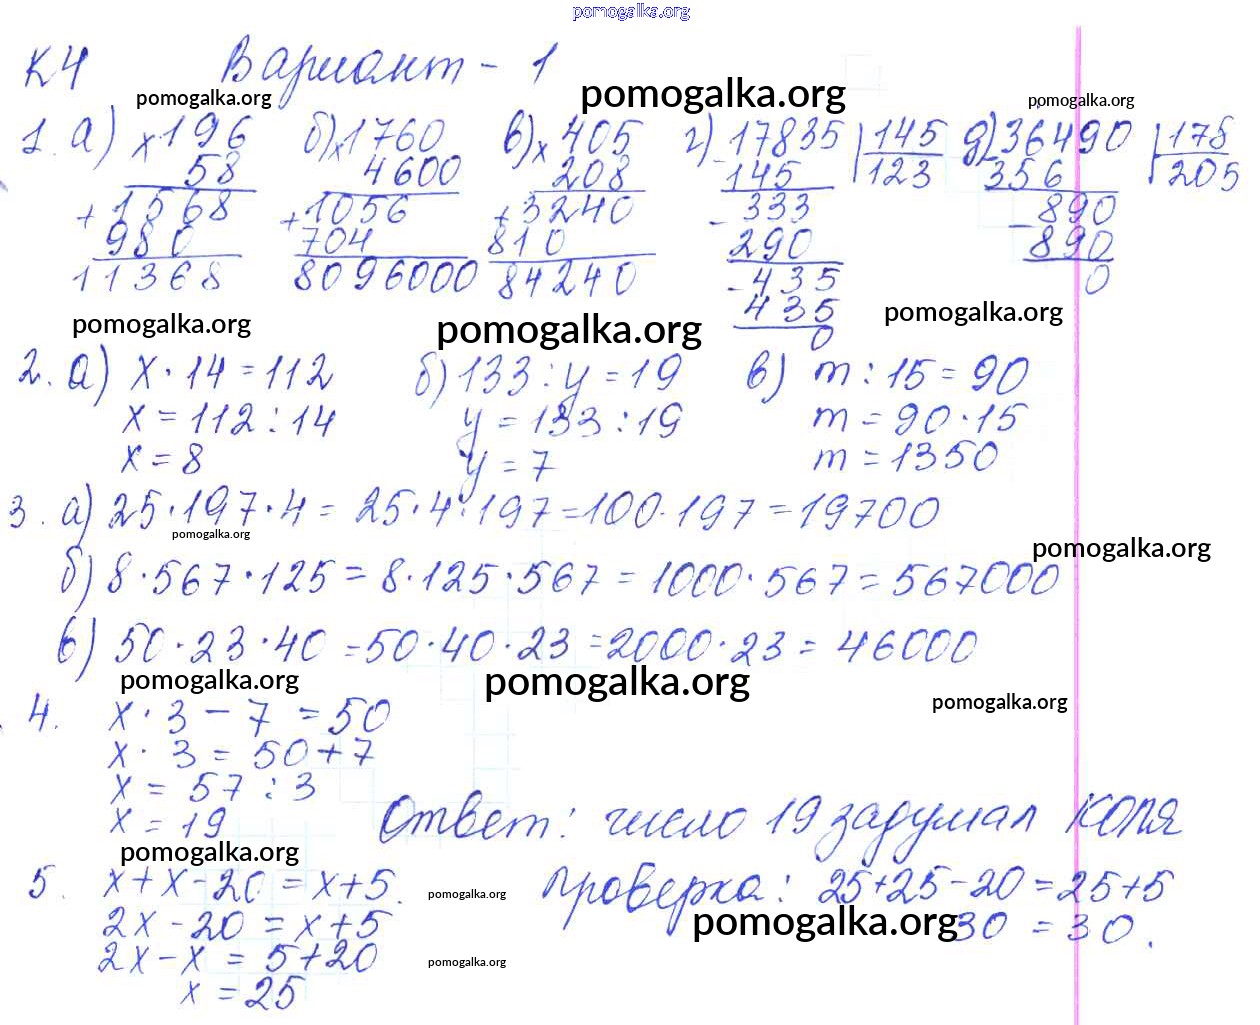 pomogalka.org
К4 Вариант - 1
pomogalka.org pomogalka.org pomogalka.org
1. а) x 196 б) x 1760 в) x 405 г) - 17835 | 145 д) - 36490 | 178
58 4600 208 145 123 356 205
+ 1568 + 1056 + 3240 - 333 - 890
980 704 810 290 890
11368 8096000 84240 - 435 0
435
0
pomogalka.org pomogalka.org pomogalka.org
2. а) x · 14 = 112 б) 133 : y = 19 в) m : 15 = 90
x = 112 : 14 y = 133 : 19 m = 90 · 15
x = 8 y = 7 m = 1350
3. а) 25 · 197 · 4 = 25 · 4 · 197 = 100 · 197 = 19700
pomogalka.org pomogalka.org
б) 8 · 567 · 125 = 8 · 125 · 567 = 1000 · 567 = 567000
в) 50 · 23 · 40 = 50 · 40 · 23 = 2000 · 23 = 46000
pomogalka.org pomogalka.org pomogalka.org
4. x · 3 - 7 = 50
x · 3 = 50 + 7
x = 57 : 3
x = 19 Ответ: число 19 задумал Коля
pomogalka.org
5. x + x - 20 = x + 5. pomogalka.org Проверка: 25 + 25 - 20 = 25 + 5
2x - 20 = x + 5 pomogalka.org 30 = 30.
2x - x = 5 + 20 pomogalka.org
x = 25